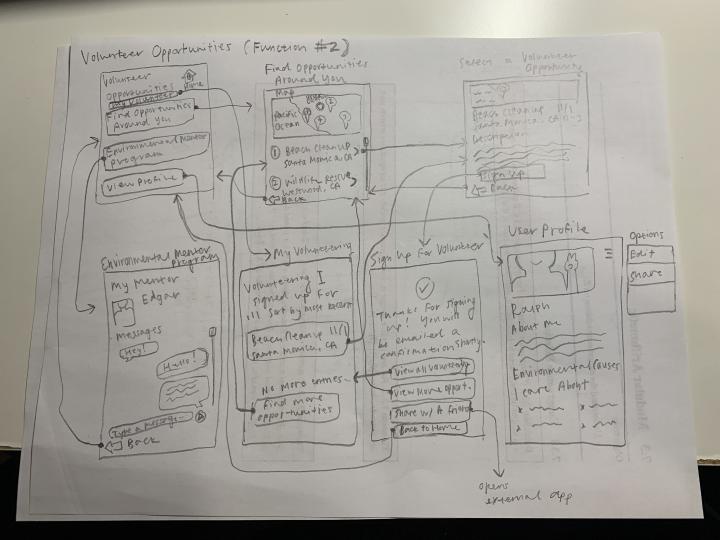 Volunteer Opportunities (Function #2)
Volunteer
Opportunities
Home
My Volunteering
Find Opportunities
Around You
Environmental Mentor
Program
View Profile
Find Opportunities
Around You
Map
Pacific
Ocean
1 Beach Cleanup
Santa Monica, CA
2 Wildlife Rescue
Westwood, CA
Back
Select a Volunteer
Opportunity
Beach Cleanup 11/1
Santa Monica, CA
Description
Sign Up
Back
Environmental Mentor
Program
My Mentor
Edgar
Messages
Hey!
Hello!
Type a message...
Back
My Volunteering
Volunteering I
signed up for
Sort by Most Recent
Beach Cleanup 11/1
Santa Monica, CA
No more entries.
Find more
opportunities
Sign Up For Volunteer
Thanks for signing
up! You will
be emailed a
confirmation shortly.
View all volunteering
View more opport.
Share w/ A friend
Back to Home
opens
external app
User Profile
Ralph
About Me
Environmental Causes
I care About
Options
Edit
Share